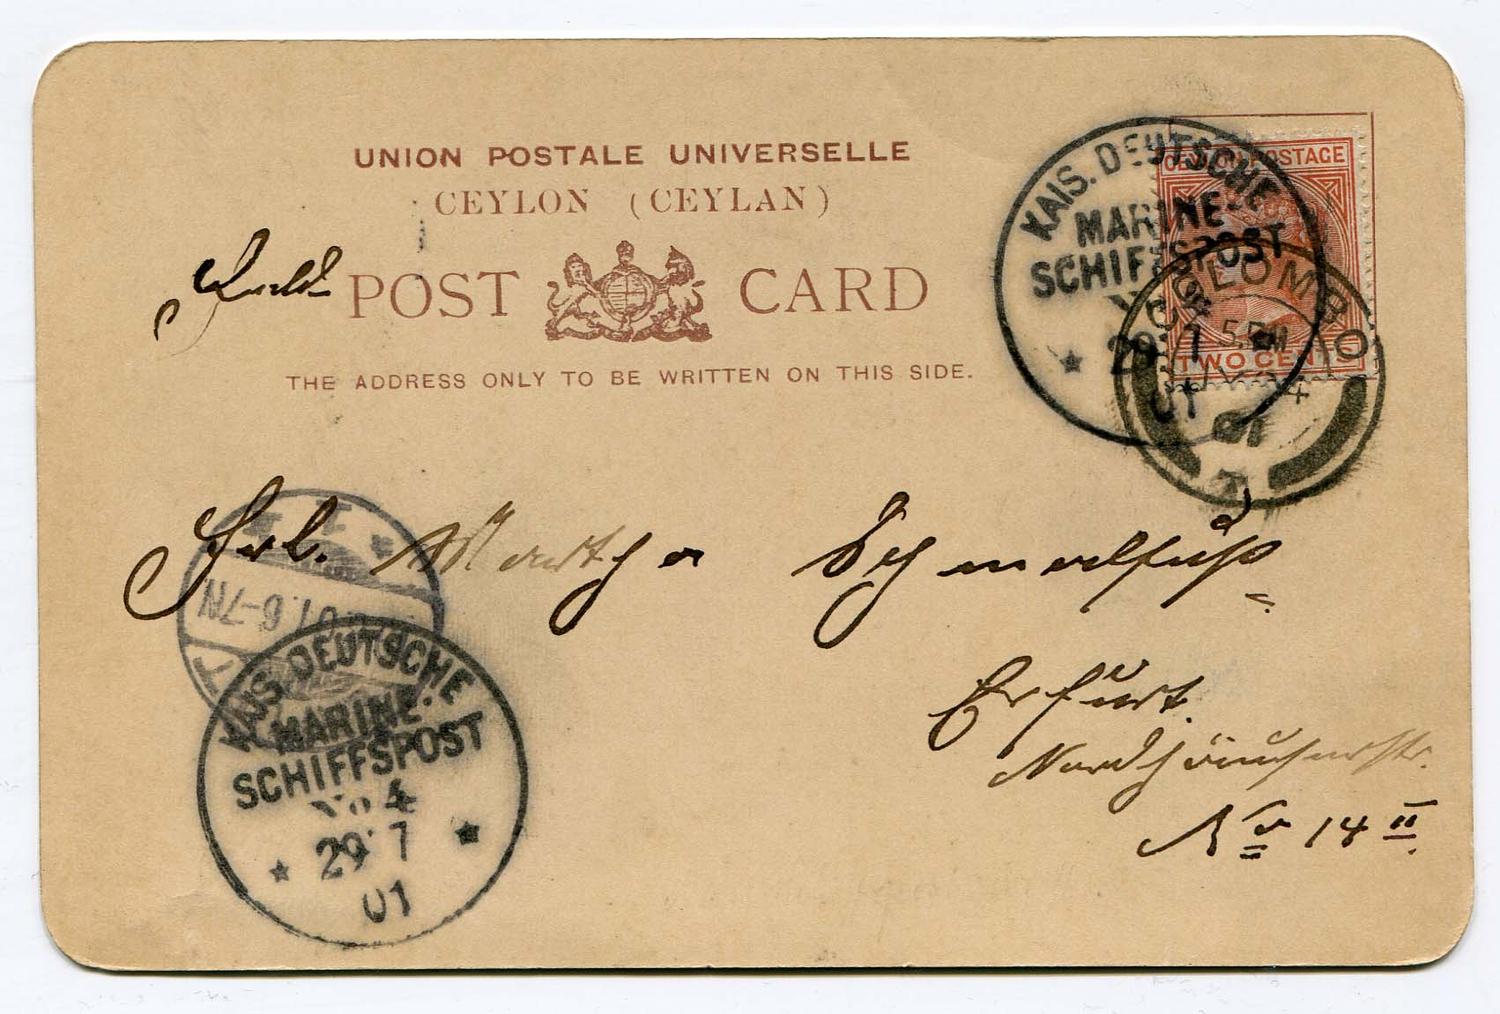 UNION POSTALE UNIVERSELLE
CEYLON (CEYLAN)
POST CARD
THE ADDRESS ONLY TO BE WRITTEN ON THIS SIDE.
CEYLON POSTAGE
TWO CENTS
KAIS. DEUTSCHE
MARINE-
SCHIFFSPOST
29 7
01
COLOMBO
5 PM
01
Frl. Martha Schmalfuß
Erfurt.
Nordhäuserstr.
No 14 II
6-7N
KAIS. DEUTSCHE
MARINE-
SCHIFFSPOST
No 4
29 7
01